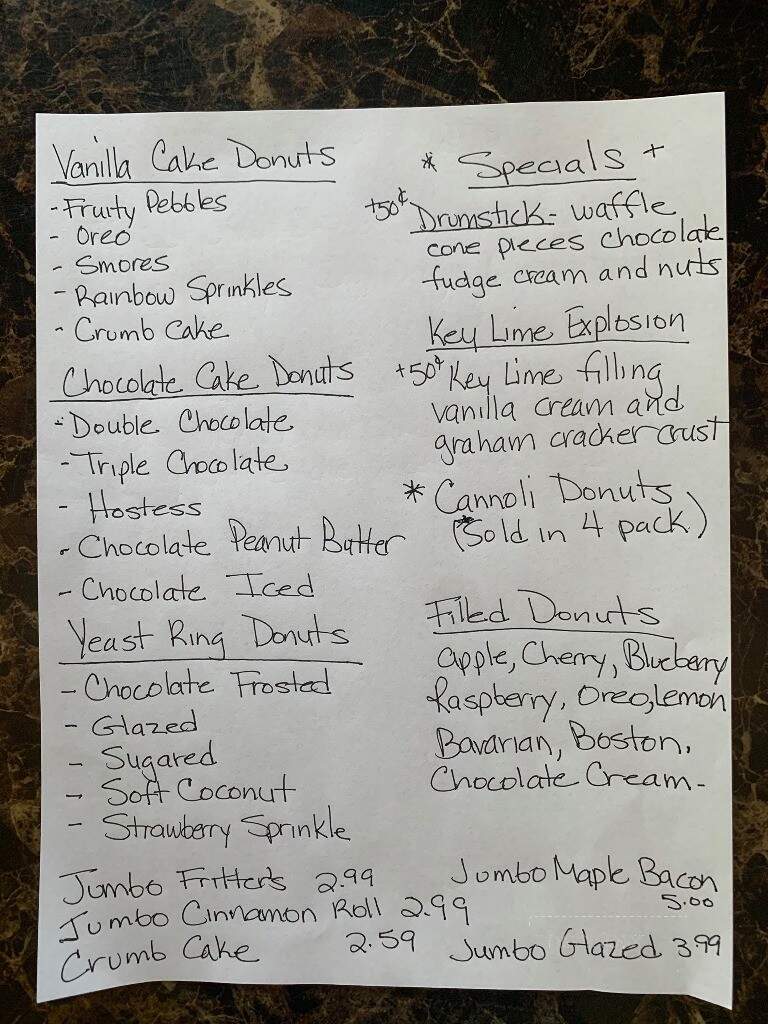 Vanilla Cake Donuts
- Fruity Pebbles
- Oreo
- Smores
- Rainbow Sprinkles
- Crumb Cake
Chocolate Cake Donuts
- Double Chocolate
- Triple Chocolate
- Hostess
- Chocolate Peanut Butter
- Chocolate Iced
Yeast Ring Donuts
- Chocolate Frosted
- Glazed
- Sugared
- Soft Coconut
- Strawberry Sprinkle
* Specials +
+50¢ Drumstick - waffle
cone pieces chocolate
fudge cream and nuts
Key Lime Explosion
+50¢ Key Lime filling
vanilla cream and
graham cracker crust
* Cannoli Donuts
(*Sold in 4 pack)
Filled Donuts
apple, Cherry, Blueberry
Raspberry, Oreo, lemon
Bavarian, Boston,
Chocolate Cream-
Jumbo Fritters 2.99
Jumbo Cinnamon Roll 2.99
Crumb Cake 2.59
Jumbo Maple Bacon
5.00
Jumbo Glazed 3.99